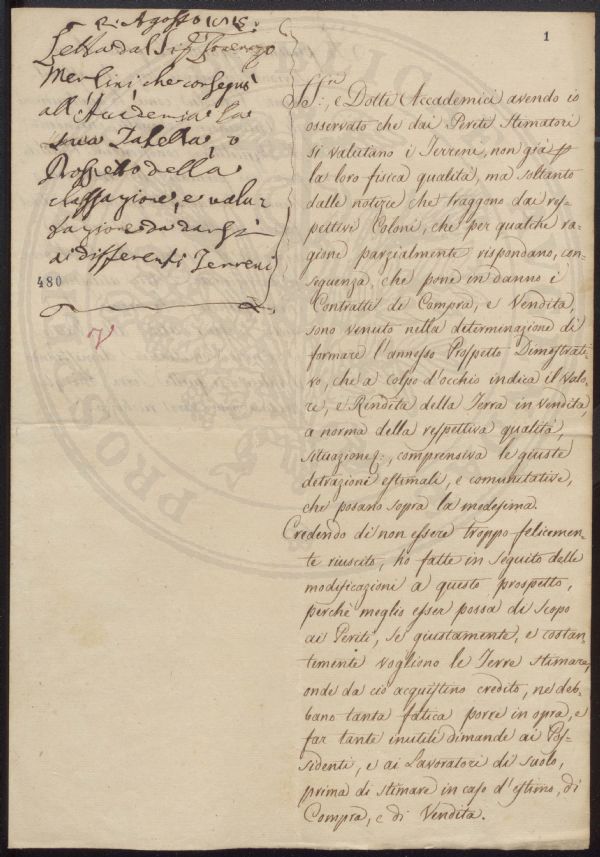 2. Agosto 1815.
Letta dal Sig. Lorenzo
Merlini, che consegnò
all'Accademia la
sua Tabella, o
Prospetto della
classazione, e valu-
tazione da darsi
ai differenti Terreni
480
1
SS:ri, e Dotti Accademici avendo io
osservato che dai Periti Stimatori
si valutano i Terreni, non già p
la loro fisica qualità, ma soltanto
dalle notizie che traggono dai res-
pettivi Coloni, che per qualche ra-
gione parzialmente rispondano, con-
seguenza, che pone in danno i
Contratti di Compra, e Vendita,
sono venuto nella determinazione di
formare l'annesso Prospetto Dimostrati-
vo, che a colpo d'occhio indica il Valo-
re, e Rendita della Terra in vendita,
a norma della respettiva qualità,
situazione, comprensiva le giuste
detrazioni estimali, e comunitative,
che posano sopra la medesima.
Credendo di non essere troppo felicemen-
te riuscito, ho fatte in seguito delle
modificazioni a questo prospetto,
perchè meglio esser possa di scopo
ai Periti, se giustamente, e costan-
temente vogliono le Terre stimare,
onde da ciò acquistino credito, nè deb-
bano tanta fatica porre in opra, e
far tante inutili dimande ai Pos-
sidenti, e ai Lavoratori di suolo,
prima di stimare in caso d'estimo, di
Compra, e di Vendita.
PROS